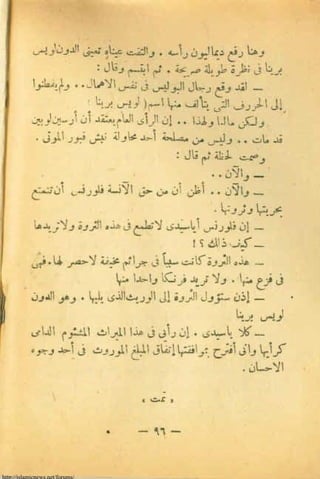 وهنا رفع ديماليون رأسه . والتفت عيناه بعينى الدون لويس
برينا فى نظرة طويلة صريحة . ثم ابتسم وقال :
— لقد وقع رجال البوليس فى نفس الاهمال .. ولم يفطنوا
إلى الحروف التى يتألف منها اسم ( لويس برينا )
ولكن مالنا ولهذا .. إن الرأى العام يعتقد أن أرسين لوبين
قد مات .. وليس من مصلحة أحد محاولة نبش قبور الموتى .
وصمت لحظة ثم قال :
— والآن ..
— والآن .. أظن أن من حق الآنسة فلورنس أن تتمتع
بحريتها وثروتها .
— إن فلورنس ياسيدى لا تطمع فى هذه الثروة ولا تريدها
— كيف ذلك ؟ !
— هذه الثروة كانت سبباً فى جرائم مخيفة لا حصر لها . فهى
فى فزع منها . ولا تريد فرنكا واحدا منها
— إذن ستؤول الثروة إلى الوريث الذى يليها . وهو الدون
لويس برينا
— كلا ياسيدى . إن رأيى فى هذا الميراث المشئوم الدامى
كرأيها وانى أقترح بموافقتها إنفاق المبلغ الموروث فى أحد وجوه
الاحسان .
« تمت »
— ٩٦ —
http://islamicnews.net/forums/